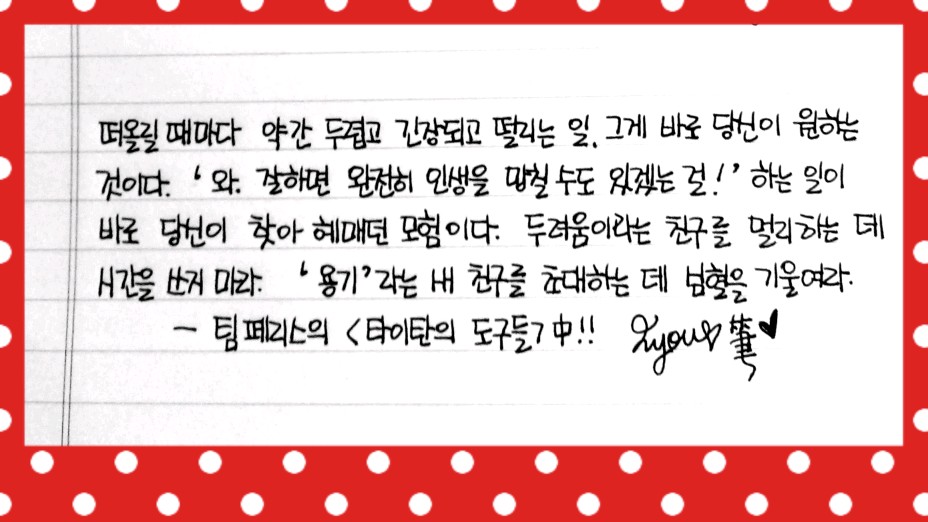 떠올릴 때마다 약간 두렵고 긴장되고 떨리는 일, 그게 바로 당신이 원하는
것이다. '와. 잘하면 완전히 인생을 망칠 수도 있겠는 걸!' 하는 일이
바로 당신이 찾아 헤매던 모험이다. 두려움이라는 친구를 멀리하는 데
시간을 쓰지 마라. '용기'라는 새 친구를 초대하는 데 심혈을 기울여라.
- 팀페리스의 <타이탄의 도구들> 中!! 筆♥